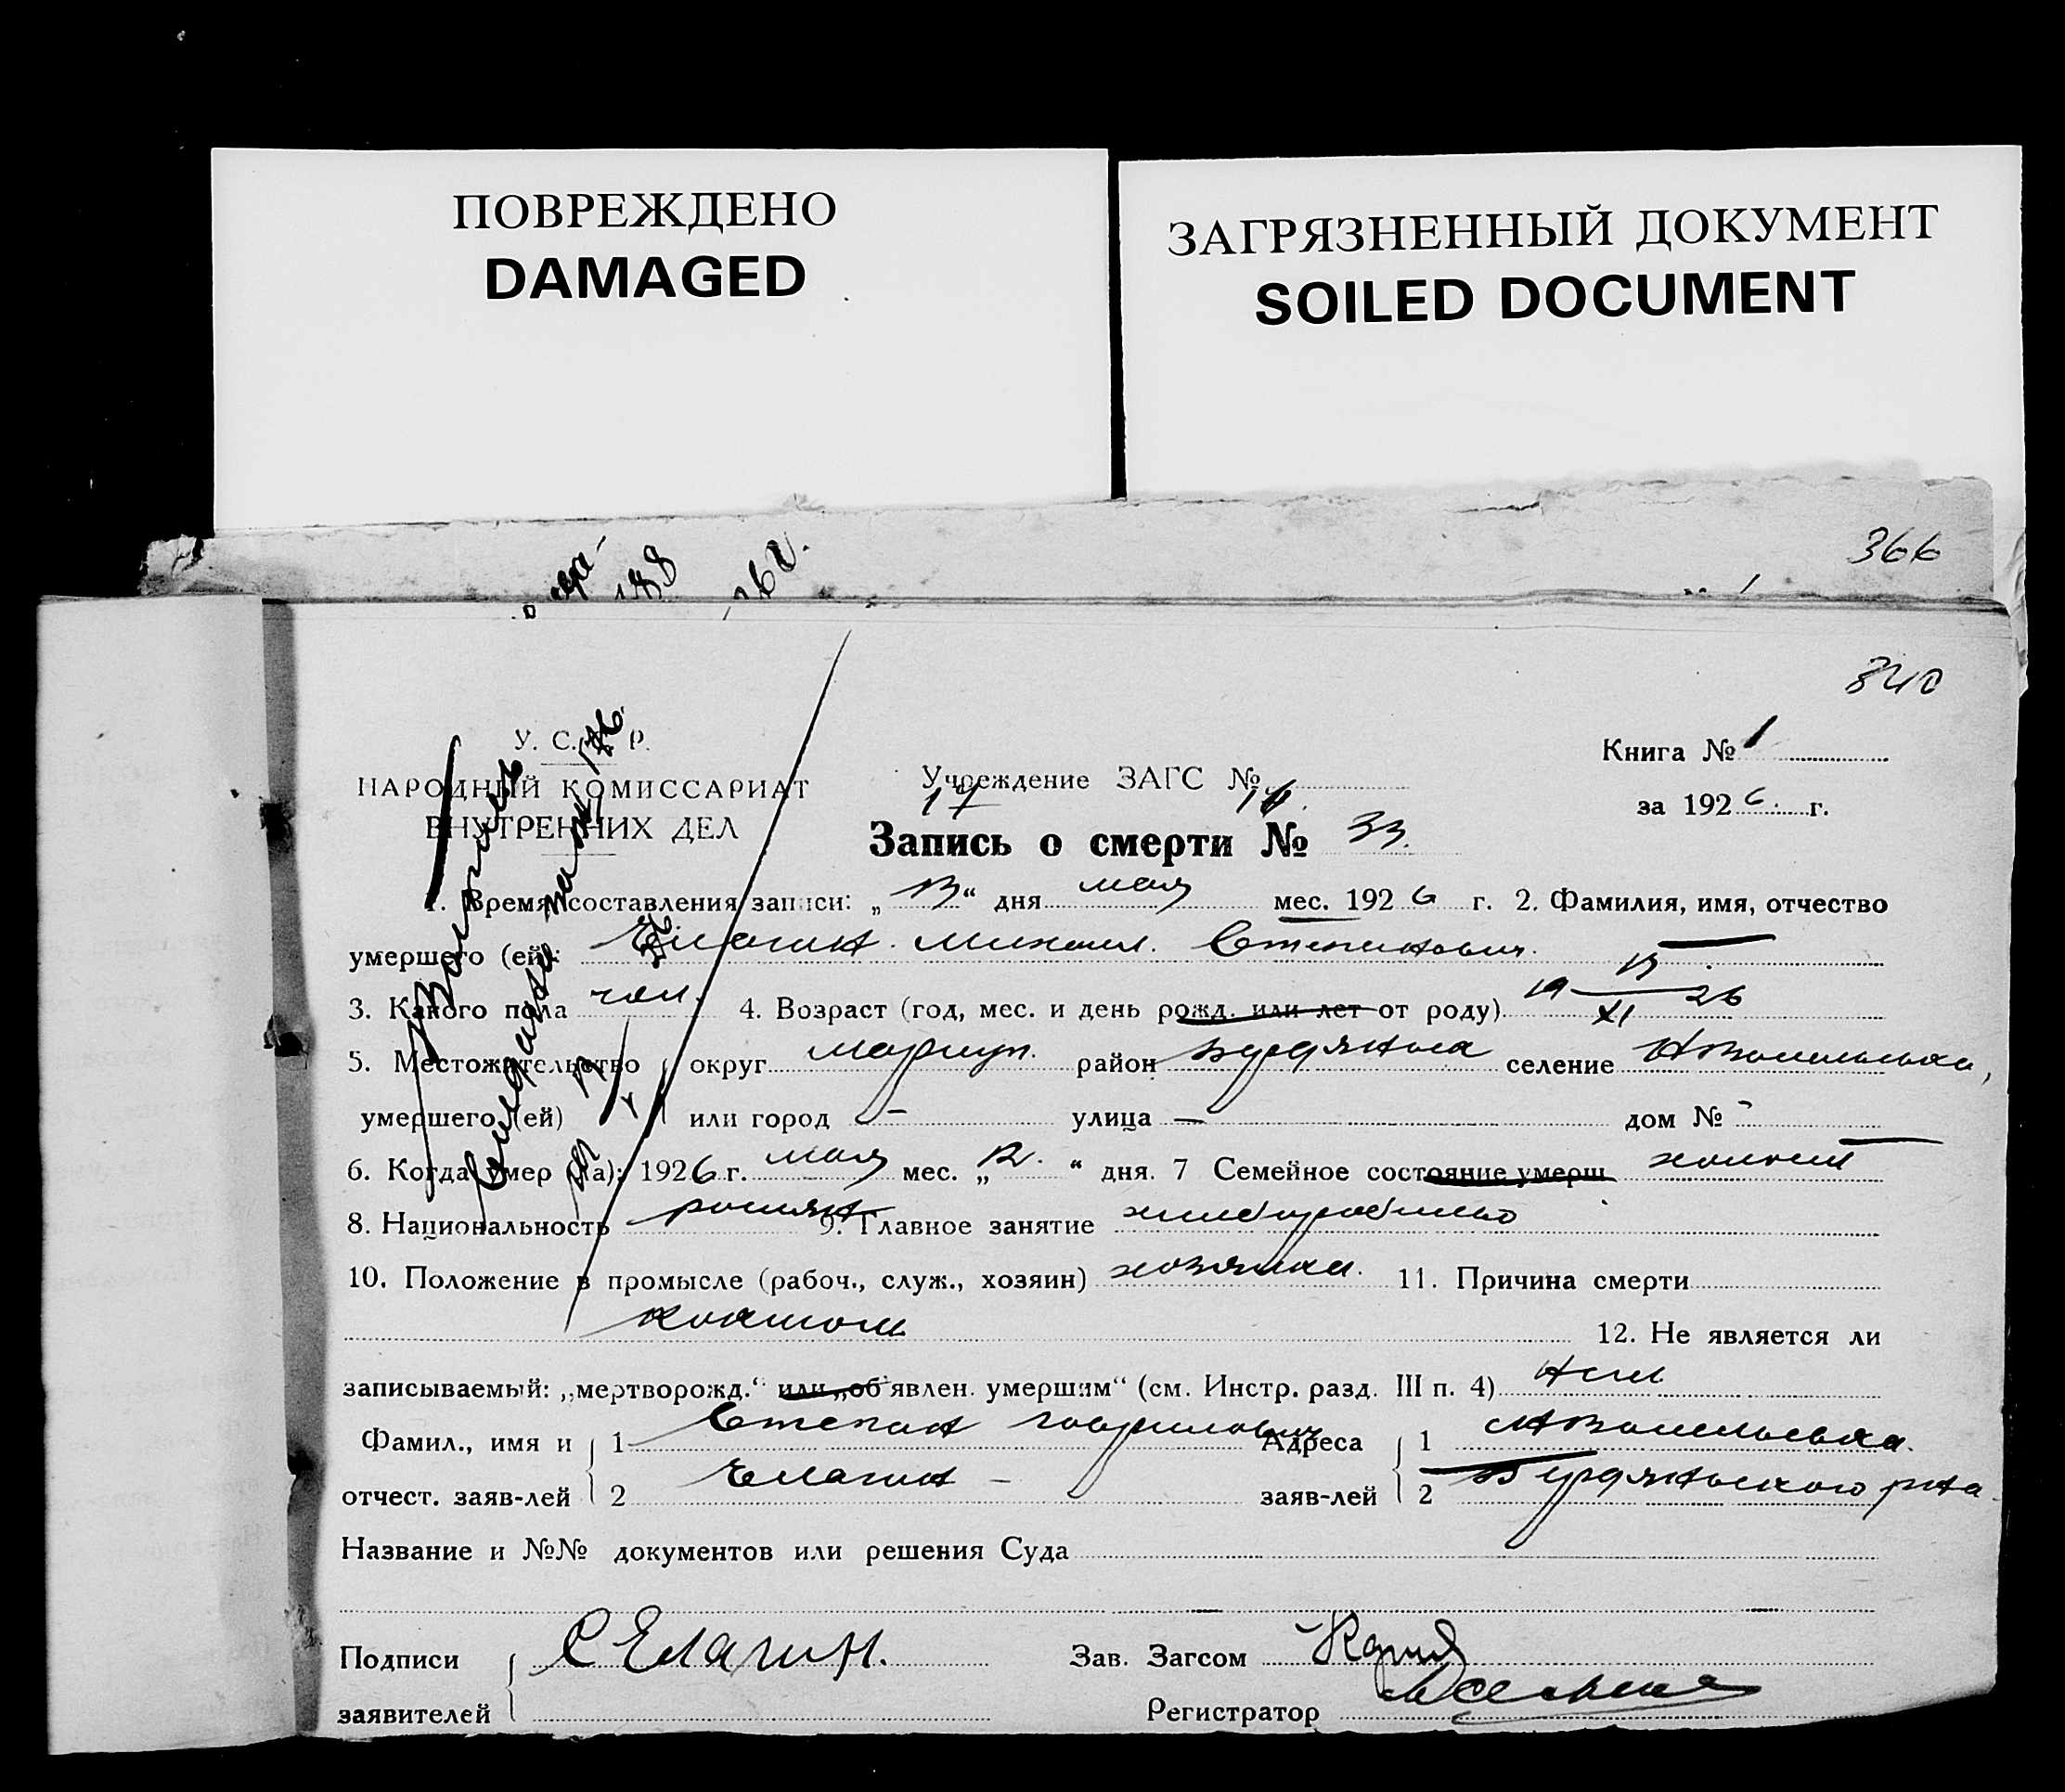 ПОВРЕЖДЕНО
DAMAGED
ЗАГРЯЗНЕННЫЙ ДОКУМЕНТ
SOILED DOCUMENT
366
340
У. С. Р.
НАРОДНЫЙ КОМИССАРИАТ
ВНУТРЕННИХ ДЕЛ
Учреждение ЗАГС №
Книга № 1
за 1926 г.
Запись о смерти № 33.
1. Время составления записи: „13“ дня мая мес. 1926 г. 2. Фамилия, имя, отчество
умершего (ей): Елагин Михаил Степанович
3. Какого пола чол. 4. Возраст (год, мес. и день рожд. или лет от роду) 19 XI 26
5. Местожительство округ Мариуп. район Бердянськ селение Нвасильевка,
умершего (ей) или город – улица — дом № -
6. Когда умер (ла): 1926 г. мая мес. „12.“ дня. 7 Семейное состояние умерш. холост
8. Национальность росиян 9. Главное занятие хлеборобство
10. Положение в промысле (рабоч., служ., хозяин) хозяина. 11. Причина смерти
коклюш
12. Не является ли
записываемый: „мертворожд.“ или „об'явлен. умершим“ (см. Инстр. разд. III п. 4)
Фамил., имя и 1 Степан Гаврилович Адреса 1 Нвасильевка.
отчест. заяв-лей 2 Елагин – заяв-лей 2 Бердянського р-на
Название и №№ документов или решения Суда
Подписи С Елагин. Зав. Загсом
заявителей Регистратор